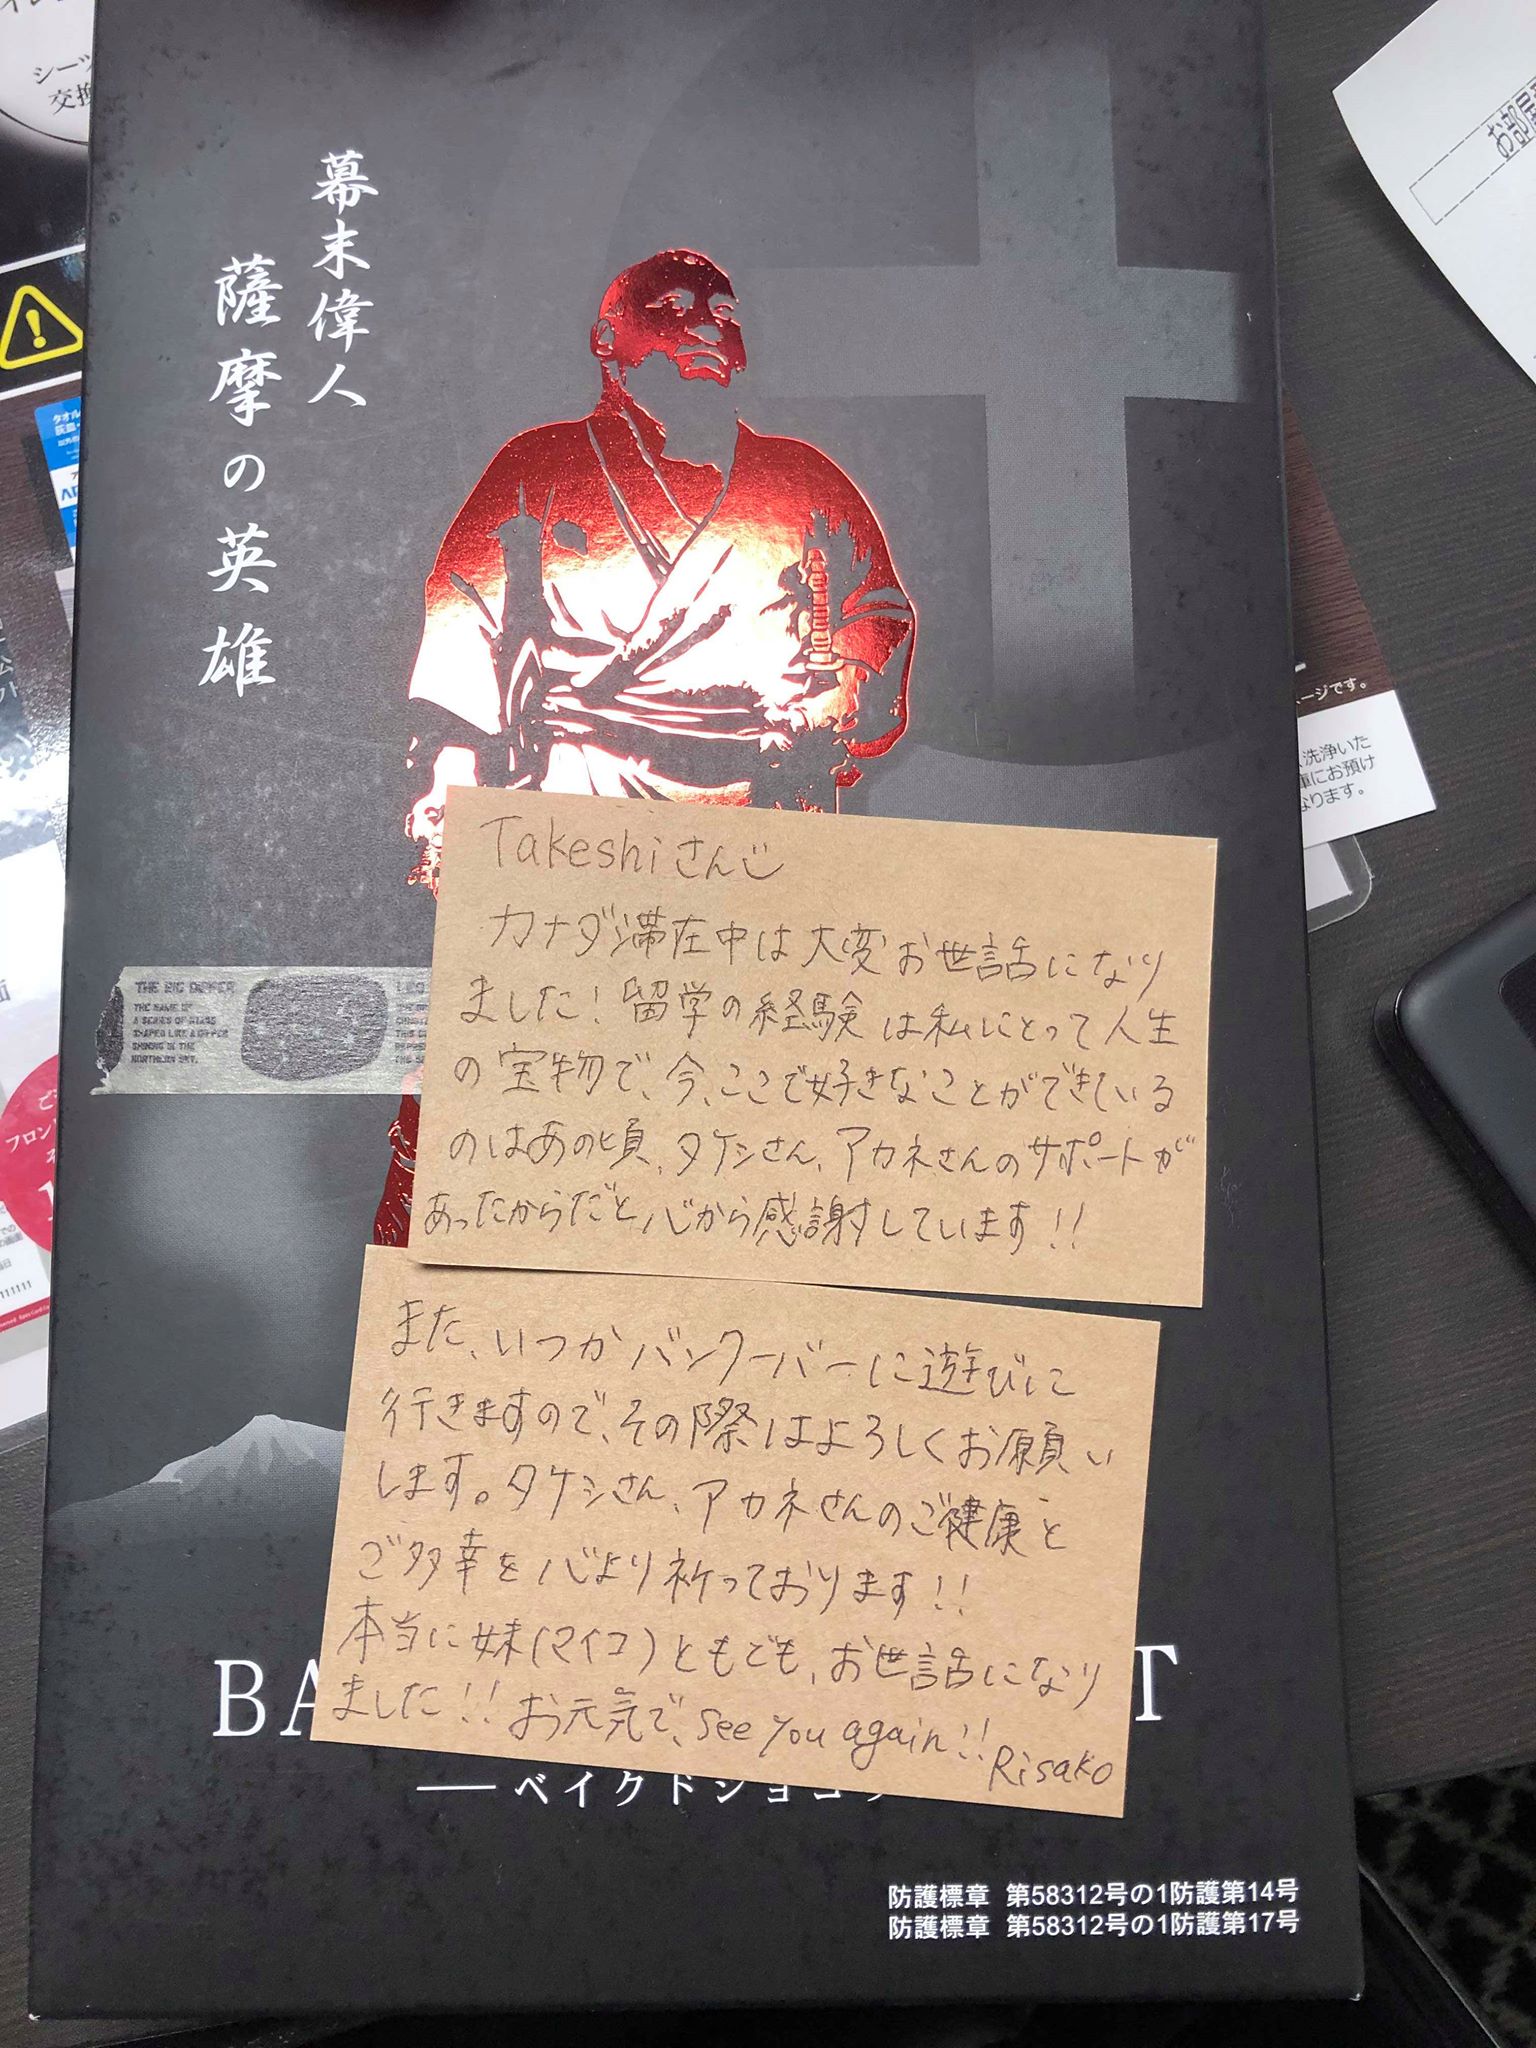 シーツ
交換
幕末偉人
薩摩の英雄
お部屋
タオル
THE BIG DIPPER
THE NAME OF
A SERIES OF STARS
SHAPED LIKE A DIPPER
SHINING IN THE
NORTHERN SKY.
LEO
Takeshiさん
カナダ滞在中は大変お世話になり
ました!留学の経験は私にとって人生
の宝物で、今、ここで好きなことができている
のはあの頃、タケシさん、アカネさんのサポートが
あったからだと心から感謝しています!!
また、いつかバンクーバーに遊びに
行きますので、その際はよろしくお願い
します。タケシさん、アカネさんのご健康と
ご多幸を心より祈っております!!
本当に妹(マイコ)ともども、お世話になり
ました!!お元気で、see you again!!
Risako
BA
T
ベイクドショコラ
防護標章 第58312号の1防護第14号
防護標章 第58312号の1防護第17号
ージです。
洗浄いた
庫にお預け
なります。
フロント
111111